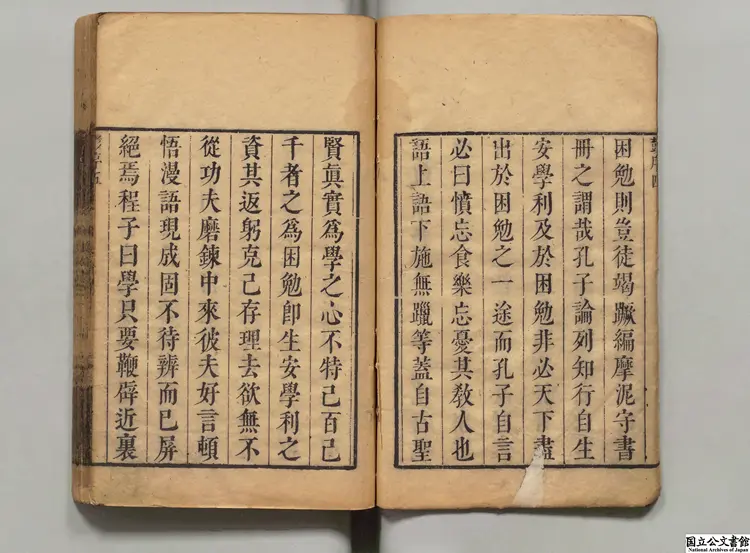 困勉則豈徒竭蹶編摩泥守書
冊之謂哉孔子論列知行自生
安學利及於困勉非必天下盡
出於困勉之一途而孔子自言
必曰憤忘食樂忘憂其敎人也
語上語下施無躐等蓋自古聖
賢眞實爲學之心不特己百己
千者之爲困勉卽生安學利之
資其返躬克己存理去欲無不
從功夫磨鍊中來彼夫好言頓
悟漫語現成固不待辨而已屏
絕焉程子曰學只要鞭辟近裏
国立公文書館
National Archives of Japan